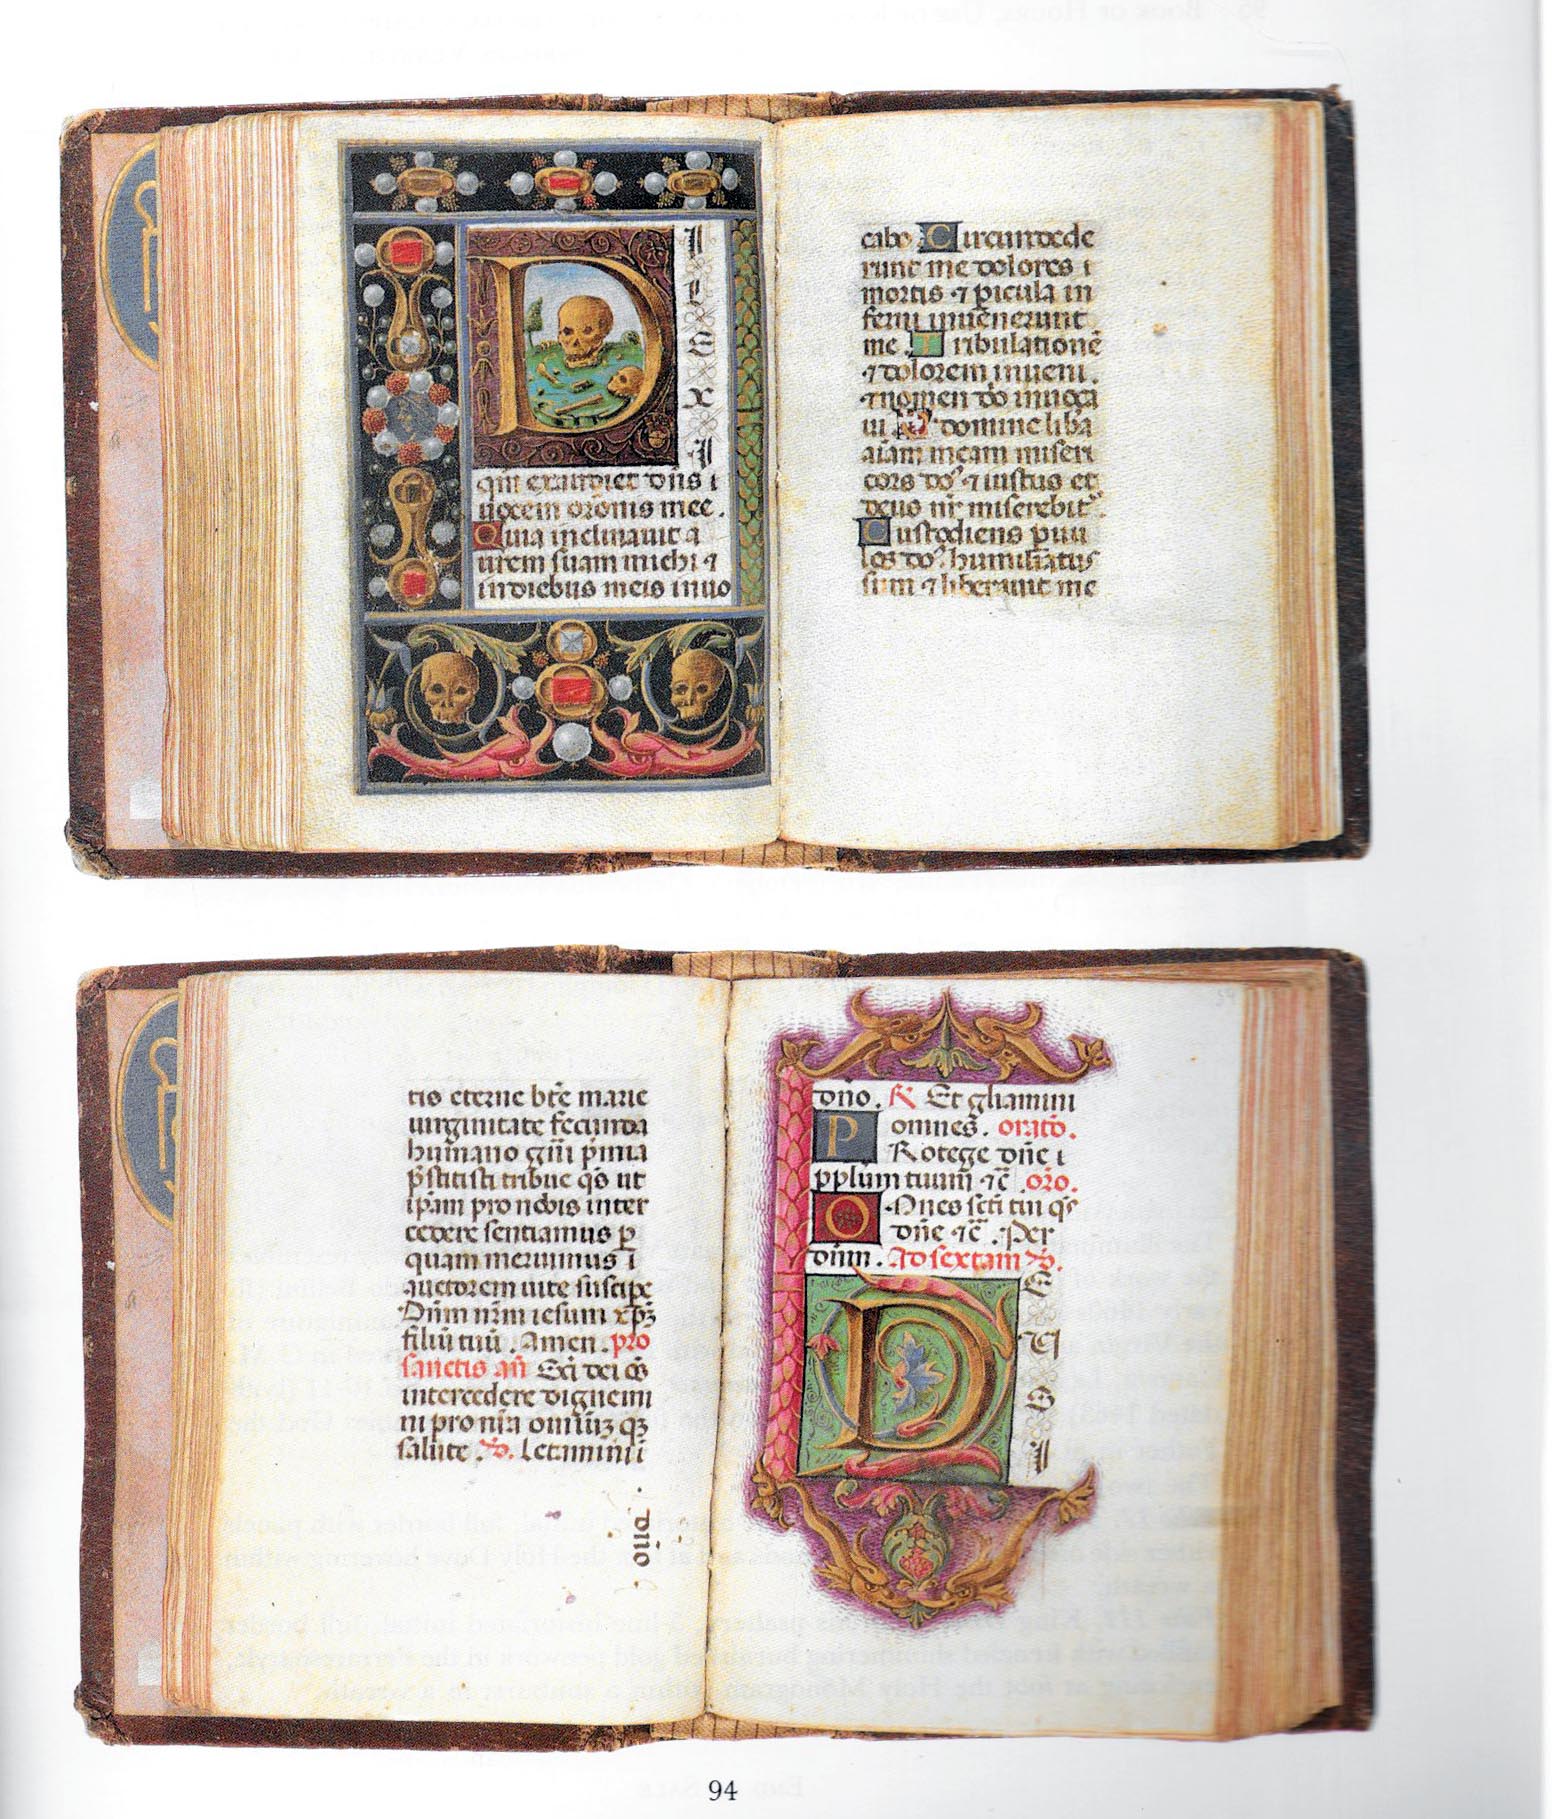 D I
L
E
X
I
qm̄ exaudiet dn̄s
uocem orōnis mee.
Quia inclinauit a
urem suam michi ⁊
in diebus meis inuo
cabo Circumdede
runt me dolores
mortis ⁊ picula in
ferni inuenerunt
me. Tribulationē
⁊ dolorem inueni.
⁊ nomen do inuoca
ui O domine liba
aīam meam miseri
cors do' ⁊ iustus et
deus nr̄ miserebit'.
Custodiens puu
los do' humiliatus
sum ⁊ liberauit me
tis eterne btē marie
uirginitate fecunda
humano gnī pmia
pstitisti tribue qs ut
ipam pro nobis inter
cedere sentiamus p
quam meruimus
auctorem uite suscipe
Dn̄m nrm iesum xpz
filiū tuū. Amen. pro
sanctis an̄ Sci dei oēs
intercedere dignemi
ni pro nrā omniūz qz
salute. V. Letamini ī
dn̄o.
dn̄o. R Et gliamini
omnes. orato.
Protege dn̄e
pplum tuum ⁊c̄. oro.
Omnes sctī tui qs
dn̄e ⁊c̄. Per
dn̄m. Ad sextam V.
D E
US
I
94